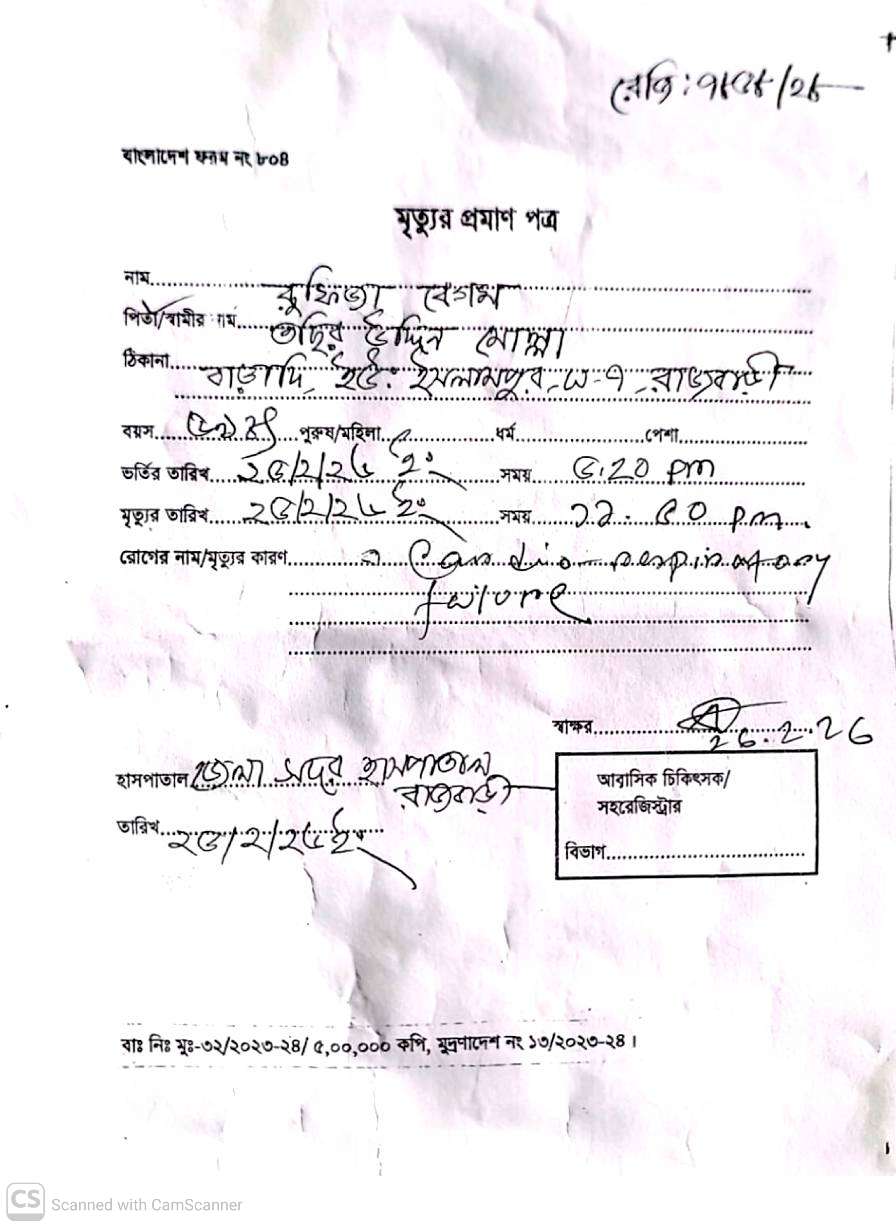 রেজি:
বাংলাদেশ ফরম নং ৮০৪
মৃত্যুর প্রমাণ পত্র
নাম.......... বেগম
পিতা/স্বামীর নাম.......... উদ্দিন মোল্লা
ঠিকানা.......... ইউ: ইসলামপুর, রাজবাড়ী
বয়স.......... পুরুষ/মহিলা.......... ধর্ম.......... পেশা..........
ভর্তির তারিখ.......... ২৬/২/২৬ ইং সময়.......... pm
মৃত্যুর তারিখ.......... ২৬/২/২৬ ইং সময়.......... ১১.৫০ pm
রোগের নাম/মৃত্যুর কারণ.......... Cardio-respiratory
failure
স্বাক্ষর..........
26.2.26
হাসপাতাল জেলা সদর হাসপাতাল
রাজবাড়ী
আবাসিক চিকিৎসক/
সহরেজিস্ট্রার
তারিখ ২৬/২/২৬ইং
বিভাগ..........
বাঃ নিঃ মুঃ-৩২/২০২৩-২৪/ ৫,০০,০০০ কপি, মুদ্রণাদেশ নং ১৩/২০২৩-২৪।
CS Scanned with CamScanner